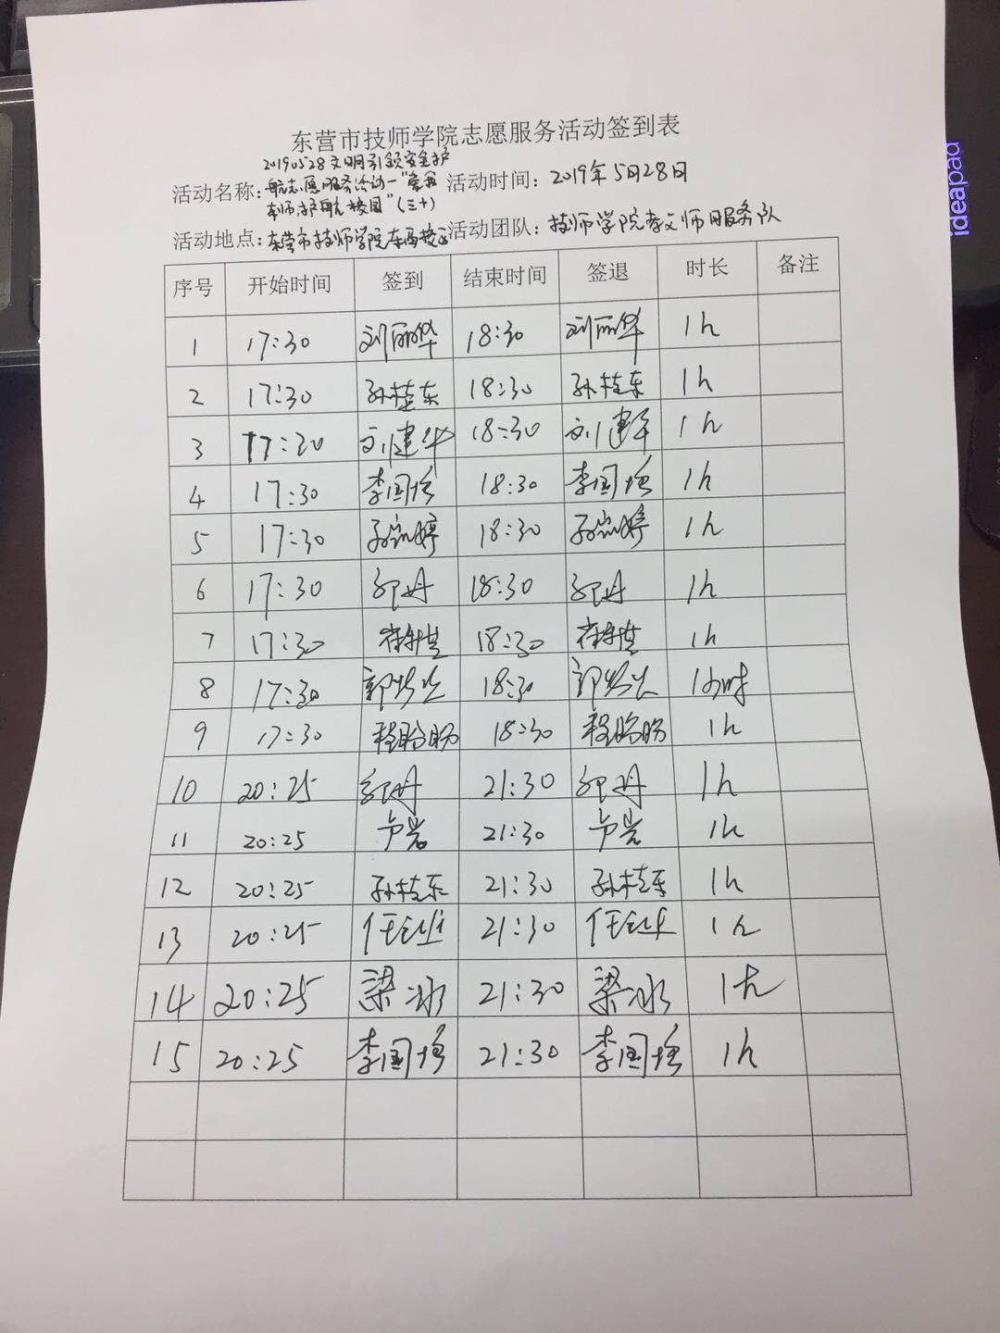 东营市技师学院志愿服务活动签到表
20190528文明引领安全护
活动名称：航志愿服务活动—“ 活动时间：2019年5月28日
护航校园”（三十）
活动地点：东营市技师学院东西校区 活动团队：技师学院孝文师日服务队
序号 开始时间 签到 结束时间 签退 时长 备注
1 17:30 刘丽华 18:30 刘丽华 1h
2 17:30 孙桂东 18:30 孙桂东 1h
3 17:30 刘建华 18:30 刘建华 1h
4 17:30 李国增 18:30 李国增 1h
5 17:30 18:30 1h
6 17:30 18:30 1h
7 17:30 18:30 1h
8 17:30 18:30 1小时
9 17:30 程盼盼 18:30 程盼盼 1h
10 20:25 21:30 1h
11 20:25 卢岩 21:30 卢岩 1h
12 20:25 孙桂东 21:30 孙桂东 1h
13 20:25 21:30 1h
14 20:25 梁冰 21:30 梁冰 1h
15 20:25 李国增 21:30 李国增 1h
ideapad